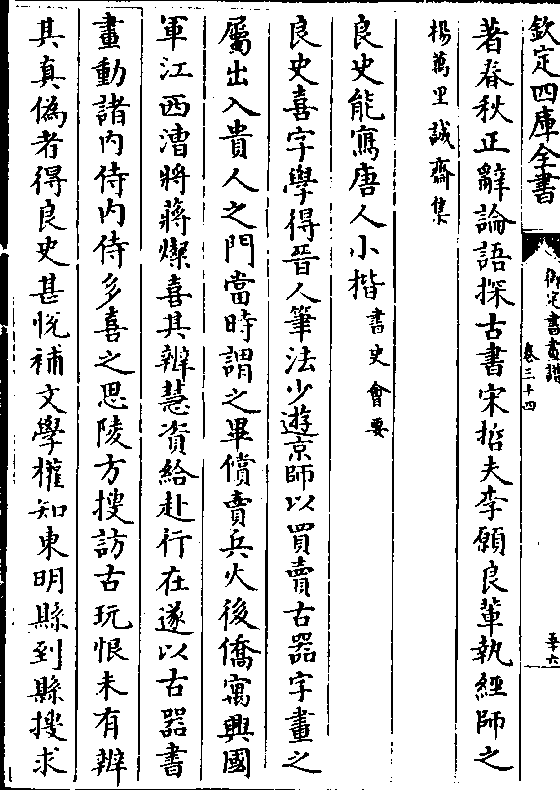 欽定四庫全書
御定書畫譜
卷三十四
著春秋正辭論語探古書宋哲夫李願良輩執經師之
楊萬里誠齋集
良史能寫唐人小楷書史會要
良史喜字學得晉人筆法少遊京師以買賣古器字畫之
屬出入貴人之門當時謂之畢償賣兵火後僑寓興國
軍江西漕將蔣燦喜其辨慧資給赴行在遂以古器書
畫動諸內侍內侍多喜之思陵方搜訪古玩恨未有辨
其真偽者得良史甚悅補文學權知東明縣到縣搜求